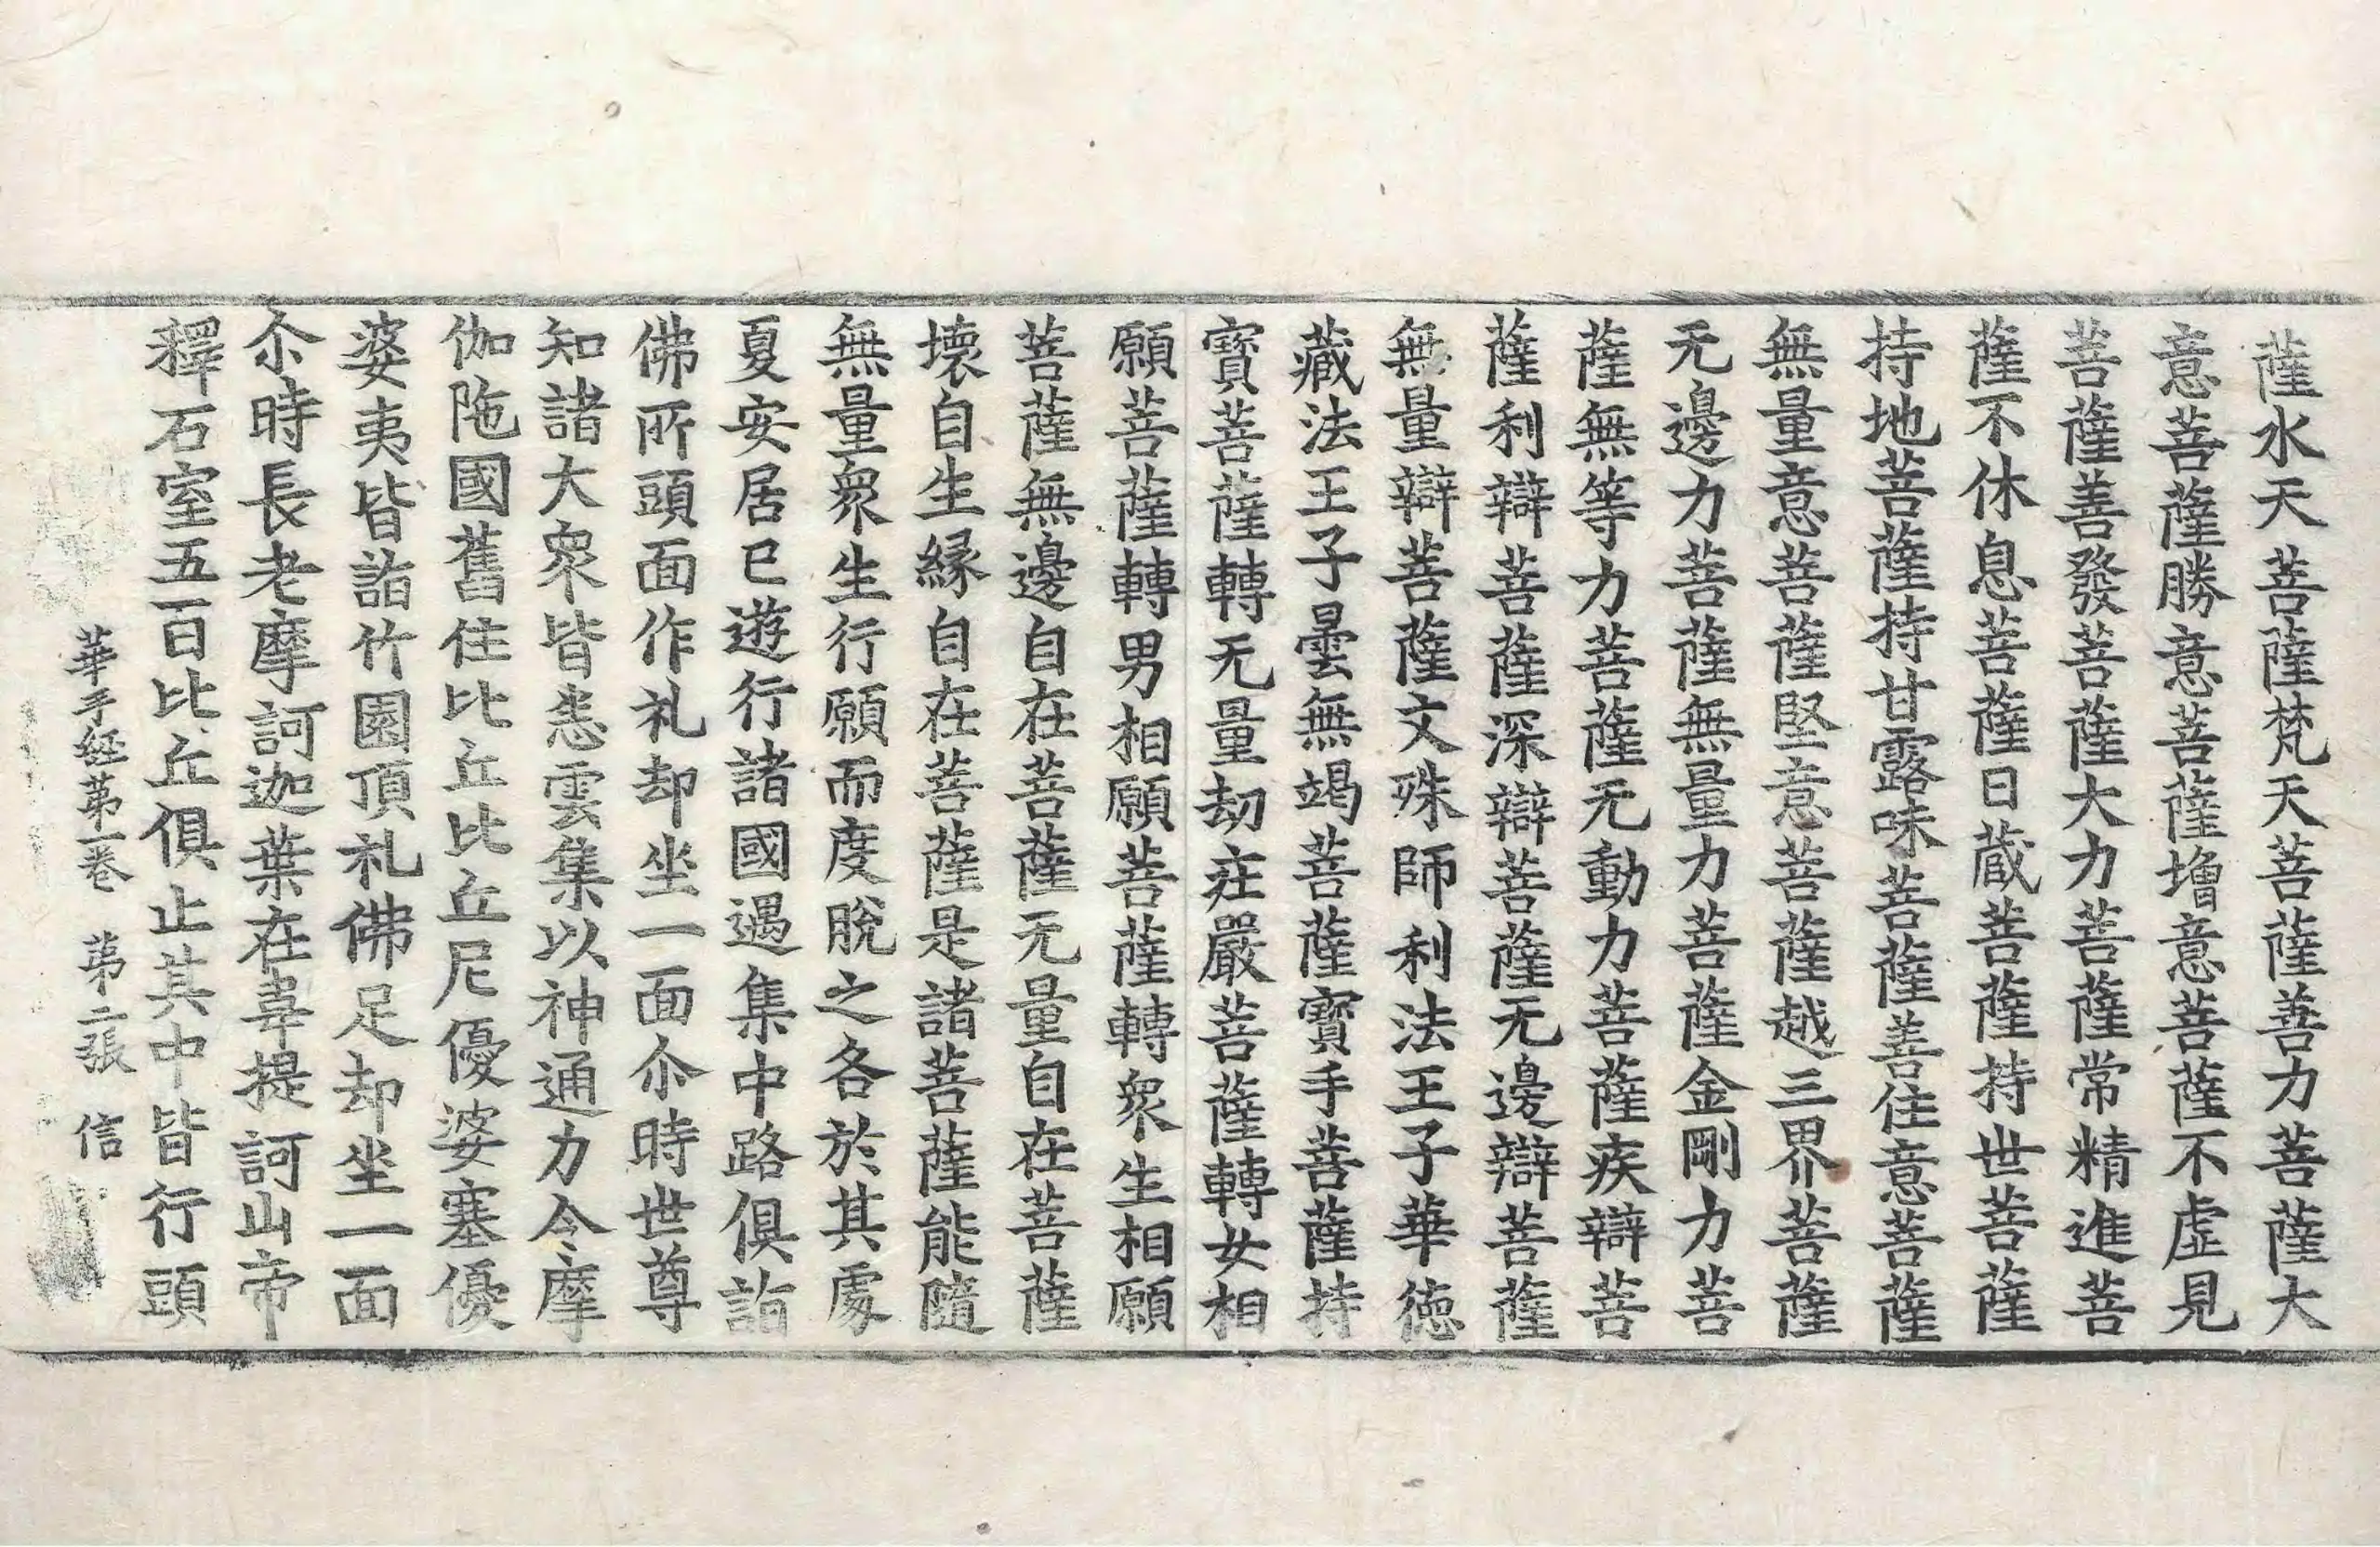 薩水天菩薩梵天菩薩善力菩薩大
意菩薩勝意菩薩增意菩薩不虛見
菩薩善發菩薩大力菩薩常精進菩
薩不休息菩薩日蔵菩薩持世菩薩
持地菩薩持甘露味菩薩善住意菩薩
無量意菩薩堅意菩薩越三界菩薩
无邊力菩薩無量力菩薩金剛力菩
薩無等力菩薩无動力菩薩疾辯菩
薩利辯菩薩深辯菩薩无邊辯菩薩
無量辯菩薩文殊師利法王子華徳
藏法王子曇無竭菩薩寶手菩薩持
寶菩薩轉无量劫莊嚴菩薩轉女相
願菩薩轉男相願菩薩轉衆生相願
菩薩無邊自在菩薩无量自在菩薩
壞自生縁自在菩薩是諸菩薩能隨
無量衆生行願而度脫之各於其處
夏安居已遊行諸國遇集中路俱詣
佛所頭面作礼却坐一面尒時世尊
知諸大衆皆悉雲集以神通力令摩
伽陁國舊住比丘比丘尼優婆塞優
婆夷皆詣竹園頂礼佛足却坐一面
尒時長老摩訶迦葉在韋提訶山帝
釋石室五百比丘俱止其中皆行頭
華手經第一卷 第二張 信